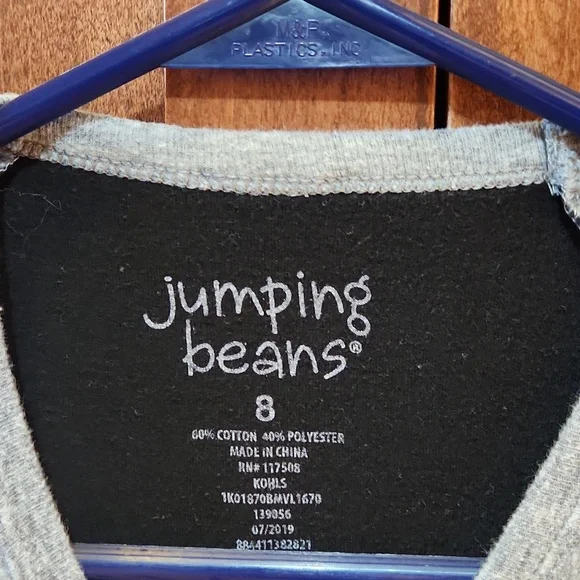 M&P
PLASTICS, INC
jumping
beans®
8
60% COTTON 40% POLYESTER
MADE IN CHINA
RN# 117508
KOHLS
1K01870BMVL1670
139056
07/2019
884411382821